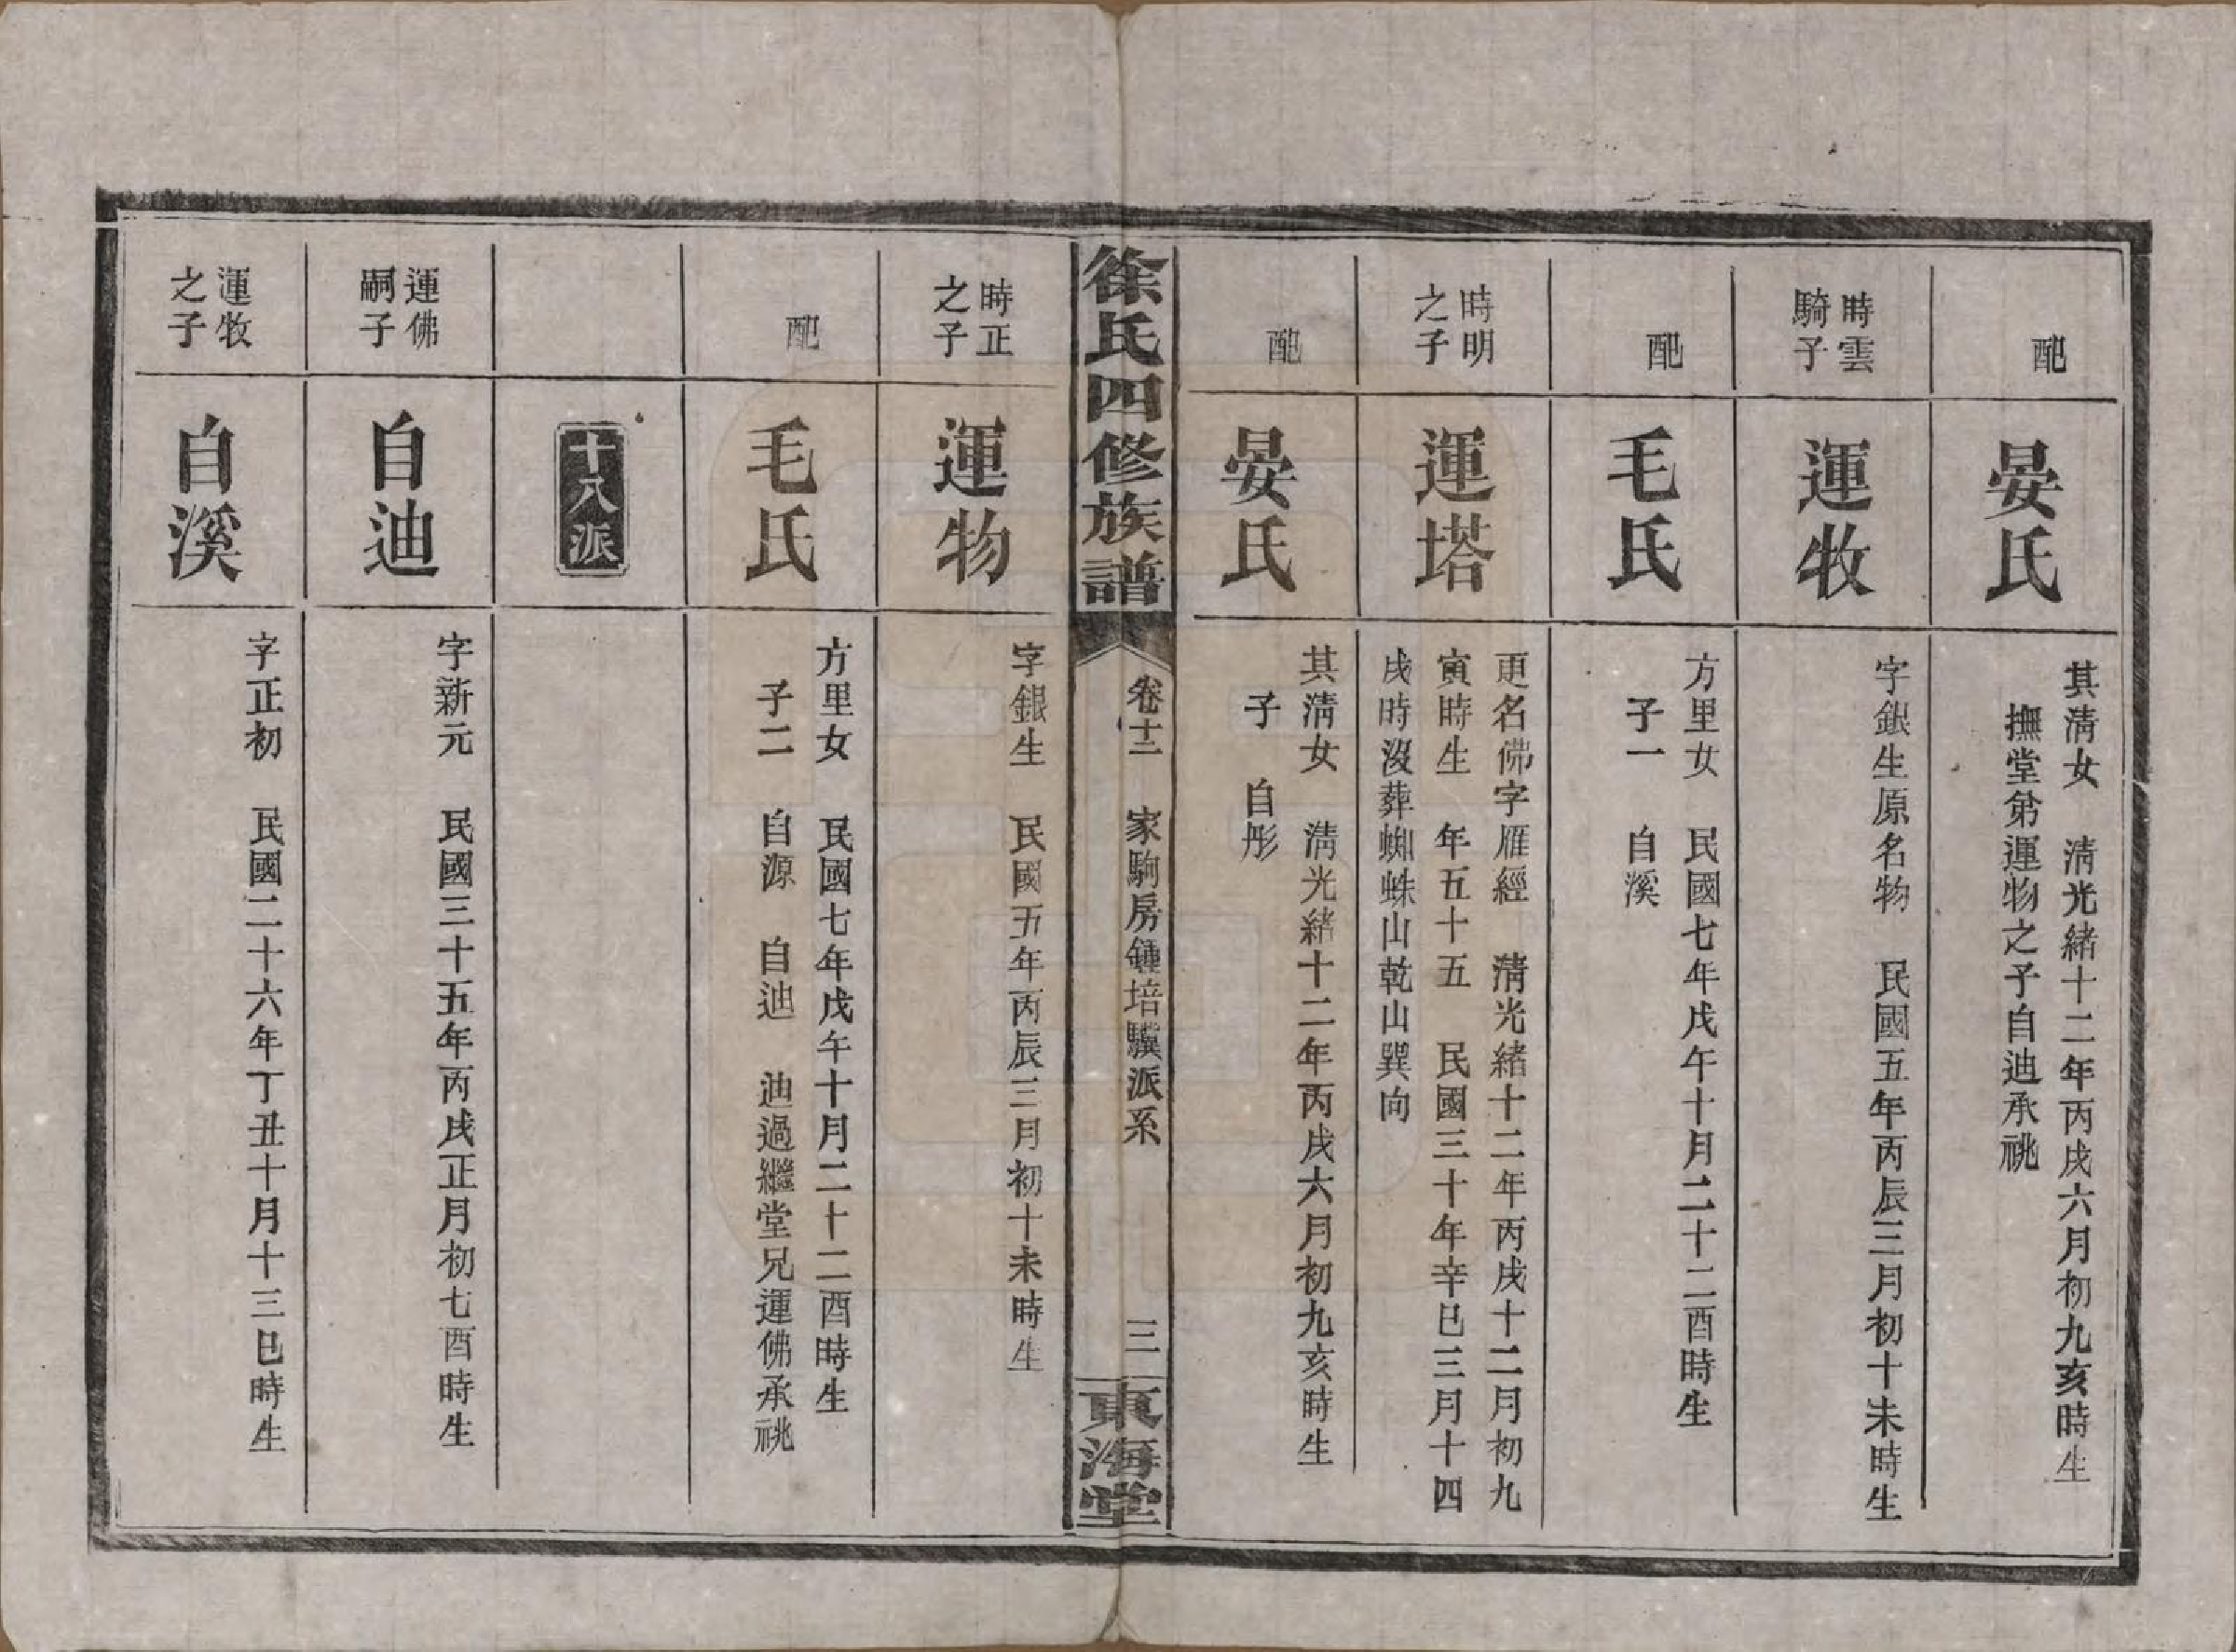 配
晏氏
其清女 清光緒十二年丙戌六月初九亥時生
撫堂弟運物之子自迪承祧
時雲
騎子
運牧
字銀生原名物 民國五年丙辰三月初十未時生
配
毛氏
方里女 民國七年戊午十月二十二酉時生
子一 自溪
時明
之子
運塔
更名佛字雁經 清光緒十二年丙戌十二月初九
寅時生 年五十五 民國三十年辛巳三月十四
戌時沒葬蜘蛛山乾山巽向
配
晏氏
其清女 清光緒十二年丙戌六月初九亥時生
子 自彤
徐氏四修族譜
卷十二 家駒房鍾培驥派系 三
東海堂
時正
之子
運物
字銀生 民國五年丙辰三月初十未時生
配
毛氏
方里女 民國七年戊午十月二十二酉時生
子二 自源 自迪 迪過繼堂兄運佛承祧
十八派
運佛
嗣子
自迪
字新元 民國三十五年丙戌正月初七酉時生
運牧
之子
自溪
字正初 民國二十六年丁丑十月十三巳時生